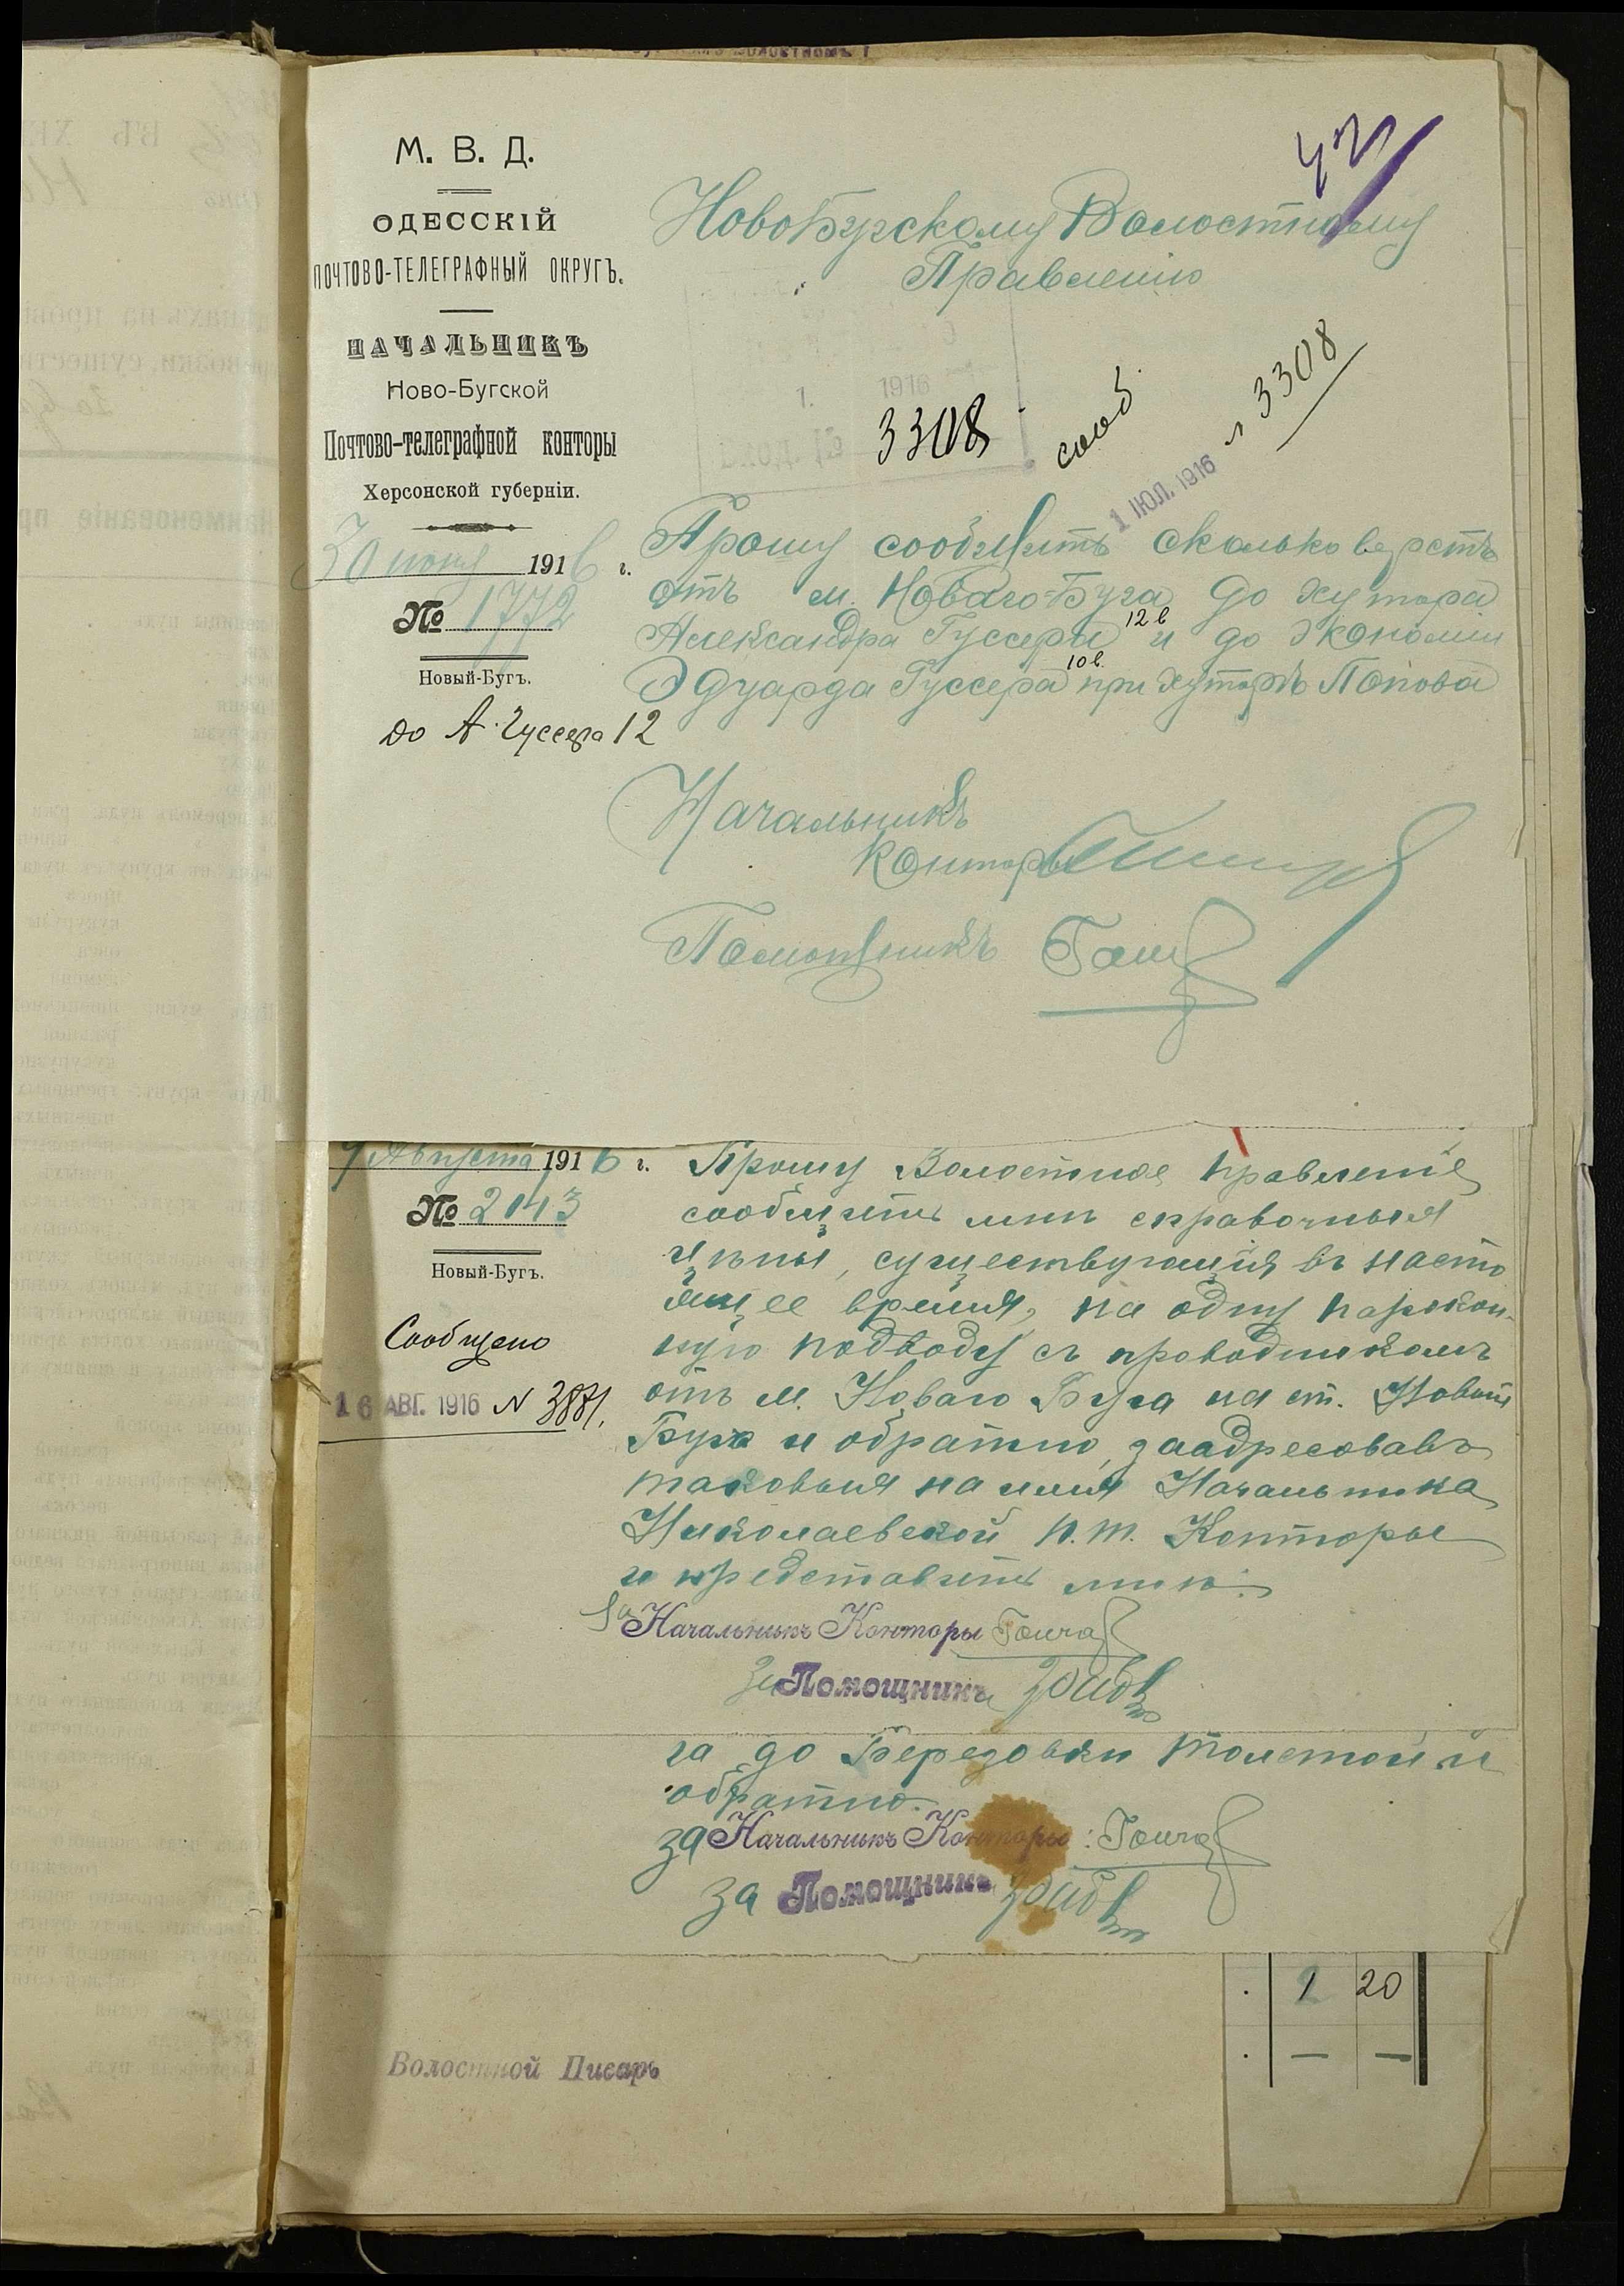 М. В. Д.
ОДЕССКІЙ
ПОЧТОВО-ТЕЛЕГРАФНЫЙ ОКРУГЪ.
НАЧАЛЬНИКЪ
Ново-Бугской
Почтово-телеграфной конторы
Херсонской губерніи.
30 июня 1916 г.
№ 1772
Новый-Бугъ.
до А. Гуссера 12
42
НовоБугскому Волостному
Правленію
1916
3308
сооб.
1 ІЮЛ. 1916
№ 3308
Прошу сообщить сколько верстъ
отъ м. Новаго-Буга до хутора
Александра Гуссера 12 в и до экономіи
Эдуарда Гуссера 10 в. при хуторѣ Попова
Начальникъ
Конторы
Помощникъ
9 Августа 1916 г.
№ 2043
Новый-Бугъ.
Сообщено
16 АВГ. 1916 N 3881.
Прошу Волостное правленіе
сообщить мнѣ справочныя
цѣны, существующія въ насто
ящее время, на одну парокон-
ную подводу съ проводникомъ
отъ м. Новаго Буга на ст. Новый
Бугъ и обратно, заадресовавъ
таковыя на имя Начальника
Николаевской п. т. Конторы
и представить мнѣ.
За Начальникъ Конторы
За Помощникъ
га до Березовки Толстой и
обратно.
за Начальникъ Конторы:
за Помощникъ
1 20
— —
Волостной Писарь